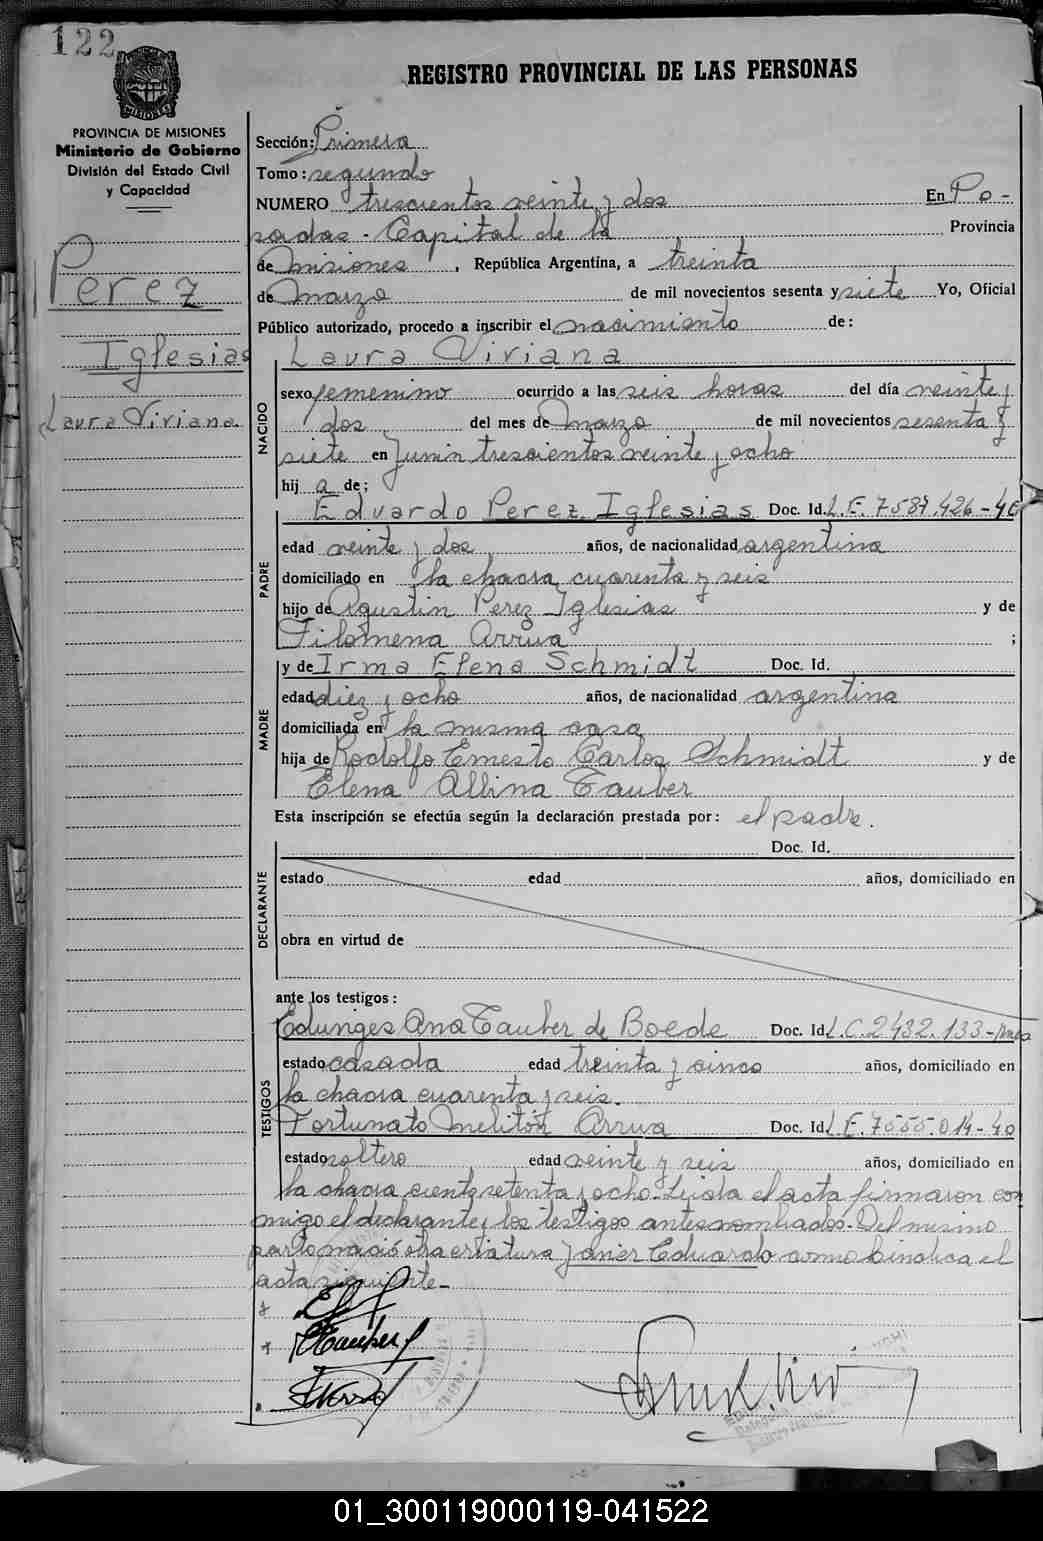 122
REGISTRO PROVINCIAL DE LAS PERSONAS
MISIONES
PROVINCIA DE MISIONES
Ministerio de Gobierno
División del Estado Civil
y Capacidad
Perez
Iglesias
Laura Viviana
Sección: Primera
Tomo: segundo
NUMERO trescientos veinte y dos En Po-
sadas - Capital de la Provincia
de Misiones, República Argentina, a treinta
de Marzo de mil novecientos sesenta y siete Yo, Oficial
Público autorizado, procedo a inscribir el nacimiento de:
Laura Viviana
NACIDO
sexo femenino ocurrido a las seis horas del día veinte y
dos del mes de Marzo de mil novecientos sesenta y
siete en Junin trescientos veinte y ocho
hij a de;
Eduardo Perez Iglesias Doc. Id. L.E. 7587.426-40
PADRE
edad veinte y dos años, de nacionalidad argentina
domiciliado en la chacra cuarenta y seis
hijo de Agustin Perez Iglesias y de
Filomena Arrua ;
y de Irma Elena Schmidt Doc. Id.
MADRE
edad diez y ocho años, de nacionalidad argentina
domiciliada en la misma casa
hija de Rodolfo Ernesto Carlos Schmidt y de
Elena Albina Tauber
Esta inscripción se efectúa según la declaración prestada por: el padre.
Doc. Id.
DECLARANTE
estado edad años, domiciliado en
obra en virtud de
ante los testigos:
Edunges Ana Tauber de Boede Doc. Id. L.C. 2432.133-
TESTIGOS
estado casada edad treinta y cinco años, domiciliado en
la chacra cuarenta y seis.
Fortunato Melitón Arrua Doc. Id. L.E. 7555.014-40
estado soltero edad veinte y seis años, domiciliado en
la chacra ciento setenta y ocho - Leida el acta firmaron con
migo el declarante y los testigos antes nombrados - Del mismo
parto nació otra criatura Javier Eduardo como lo indica el
acta siguiente -
01_300119000119-041522